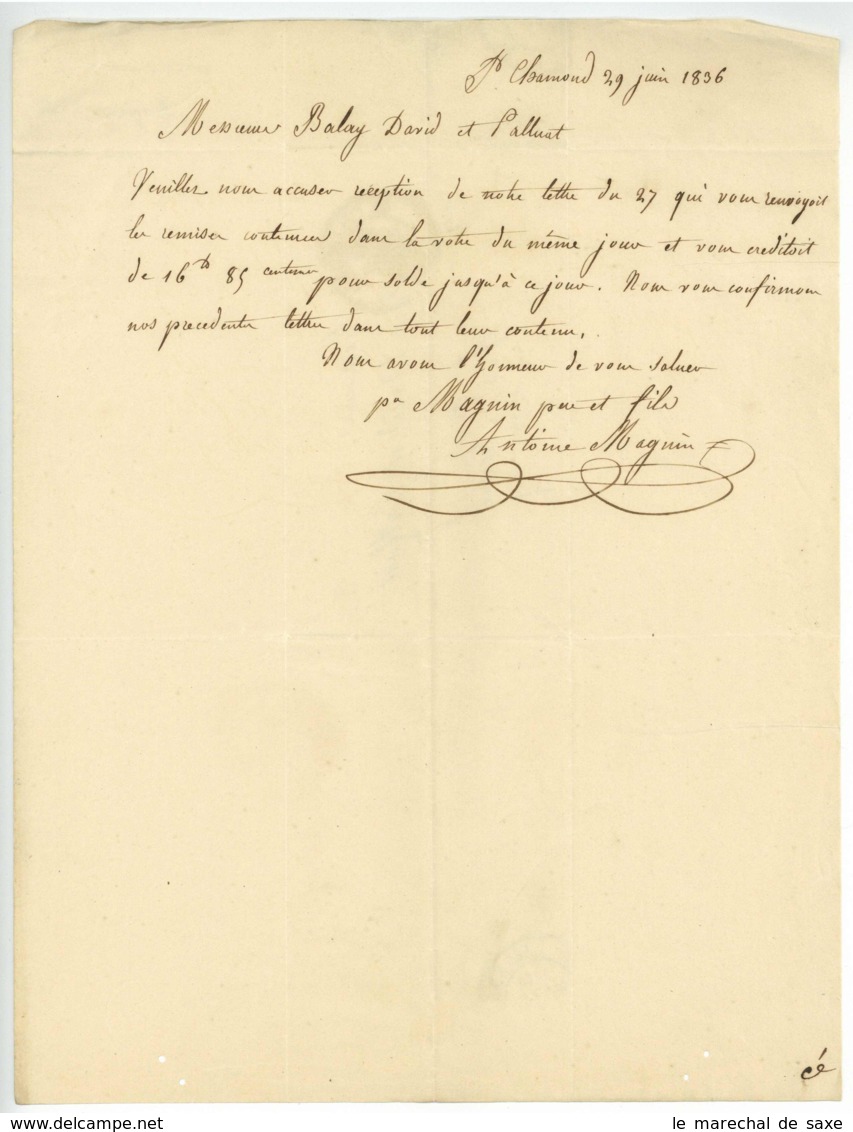 St Chamond 29 juin 1836
Messieurs Balay David et Palluat
Veuillez nous accuser reception de notre lettre du 27 qui vous renvoyoit
les remises contenues dans la votre du même jour et vous créditoit
de 16 85 centimes pour solde jusqu'à ce jour. Nous vous confirmons
nos precedentes lettres dans tout leur contenu.
Nous avons l'honneur de vous saluer
pr Magnin pere et fils
Antoine Magnin
le marechal de saxe